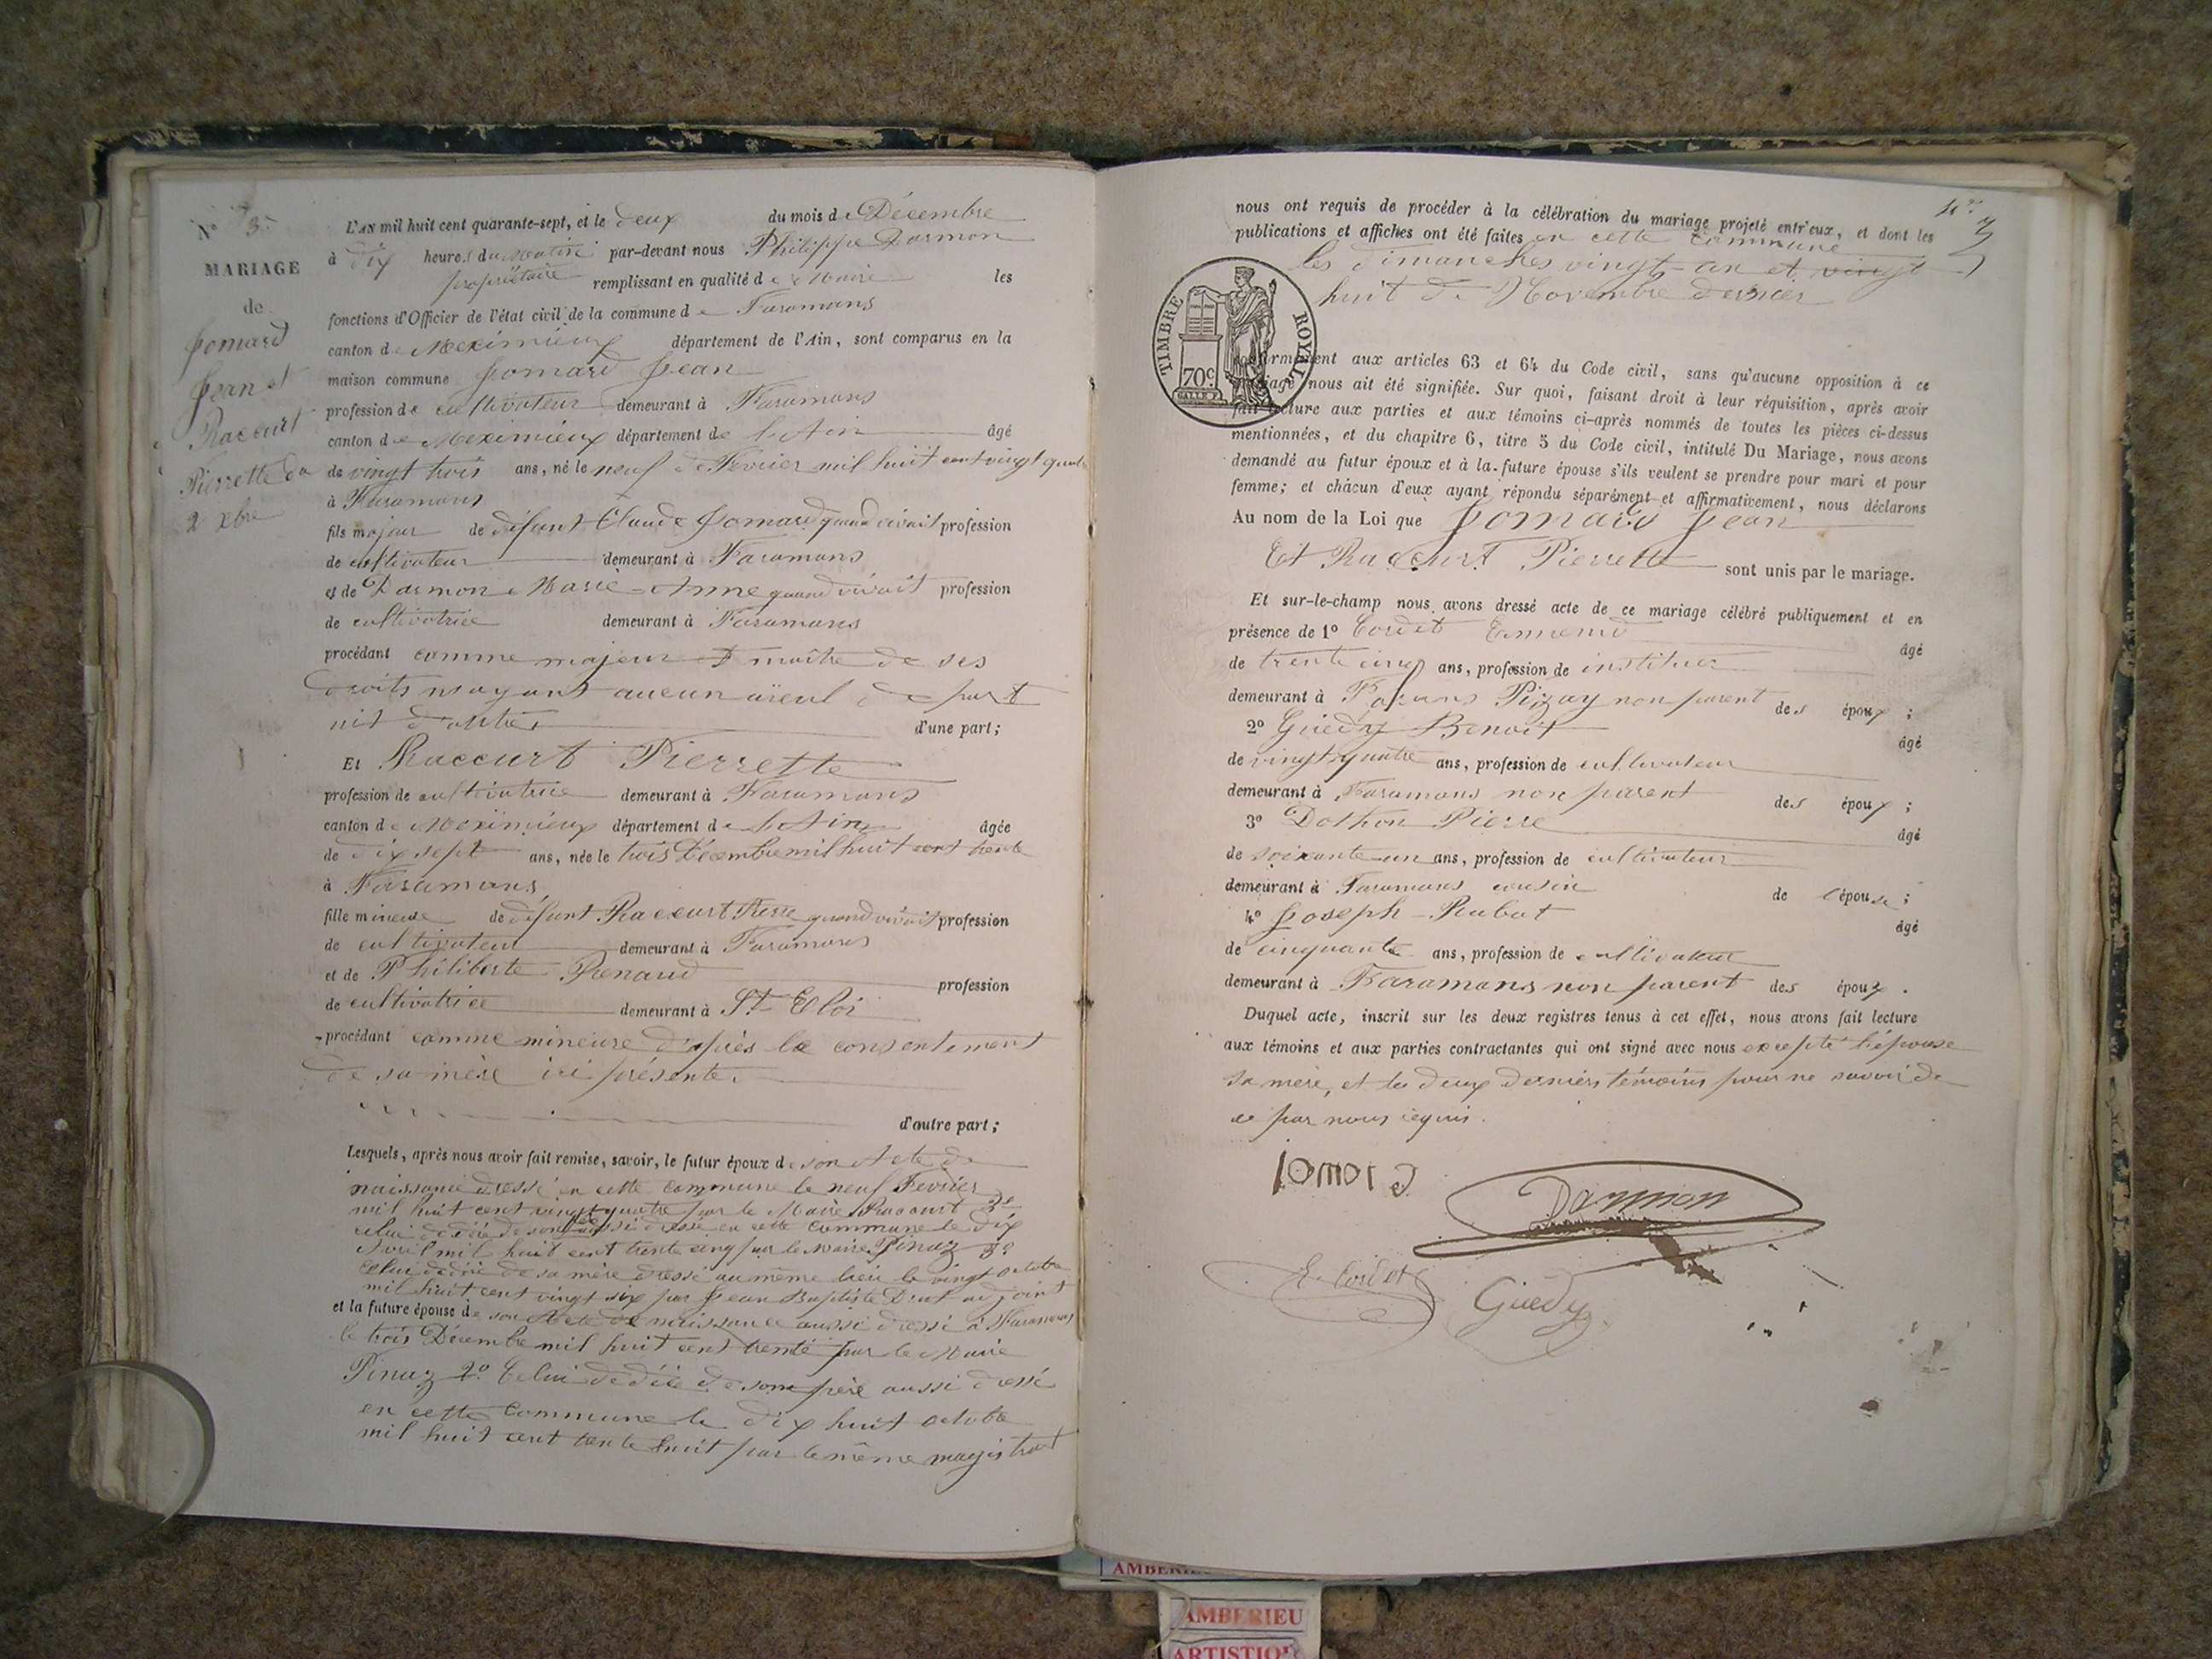 N° 3.
MARIAGE
de
Jomard
Jean et
Raccurt
Pierrette du
2 xbre
L'AN mil huit cent quarante-sept, et le deux du mois de Décembre
à dix heures du Matin par-devant nous Philippe Darmon
propriétaire remplissant en qualité de Maire les
fonctions d'Officier de l'état civil de la commune de Faramans
canton de Meximieux département de l'Ain, sont comparus en la
maison commune Jomard Jean
profession de cultivateur demeurant à Faramans
canton de Meximieux département de l'Ain âgé
de vingt trois ans, né le neuf de Fevrier mil huit cent vingt quatre
à Faramans
fils majeur de défunt Claude Jomard quand vivait profession
de cultivateur demeurant à Faramans
et de Darmon Marie-Anne quand vivait profession
de cultivatrice demeurant à Faramans
procédant comme majeur et maître de ses
droits n'ayant aucun aïeul de part
nit d'autre d'une part;
Et Raccurt Pierrette
profession de cultivatrice demeurant à Faramans
canton de Meximieux département de l'Ain âgée
de dix sept ans, née le trois Décembre mil huit cent trente
à Faramans
fille mineure de défunt Raccurt Pierre quand vivait profession
de cultivateur demeurant à Faramans
et de Philiberte Renaud profession
de cultivatrice demeurant à St-Eloi
procédant comme mineure d'après le consentement
de sa mère ici présente.
d'autre part;
Lesquels, après nous avoir fait remise, savoir, le futur époux de son Acte de
naissance dressé en cette commune le neuf Fevrier
mil huit cent vingt quatre par le Maire Raccurt 2°
celui de décé de son père aussi dressé en cette commune le dix
Avril mil huit cent trente cinq par le maire Pinaz 3°
celui de décé de sa mère dressé au même lieu le vingt octobre
mil huit cent vingt six par Jean Baptiste Drut adjoint
et la future épouse de son Acte de naissance aussi dressé à Faramans
le trois Décembre mil huit cent trente par le Maire
Pinaz 2° Celui de décé de son père aussi dressé
en cette commune le dix huit octobre
mil huit cent trente huit par le même magistrat
nous ont requis de procéder à la célébration du mariage projeté entr'eux, et dont les
publications et affiches ont été faites en cette commune
les dimanches vingt-un et vingt
huit de Novembre dernier
TIMBRE ROYAL
70c
conformément aux articles 63 et 64 du Code civil, sans qu'aucune opposition à ce
mariage nous ait été signifiée. Sur quoi, faisant droit à leur réquisition, après avoir
fait lecture aux parties et aux témoins ci-après nommés de toutes les pièces ci-dessus
mentionnées, et du chapitre 6, titre 5 du Code civil, intitulé Du Mariage, nous avons
demandé au futur époux et à la future épouse s'ils veulent se prendre pour mari et pour
femme; et chacun d'eux ayant répondu séparément et affirmativement, nous déclarons
Au nom de la Loi que Jomard Jean
Et Raccurt Pierrette sont unis par le mariage.
Et sur-le-champ nous avons dressé acte de ce mariage célébré publiquement et en
présence de 1° Cordet âgé
de trente cinq ans, profession de
demeurant à Pizay non parent des époux;
2° Guédy Benoit âgé
de vingt quatre ans, profession de cultivateur
demeurant à Faramans non parent des époux;
3° Dothon Pierre âgé
de soixante un ans, profession de cultivateur
demeurant à Faramans cousin de l'épouse;
4° Joseph Rubat âgé
de cinquante ans, profession de cultivateur
demeurant à Faramans non parent des époux.
Duquel acte, inscrit sur les deux registres tenus à cet effet, nous avons fait lecture
aux témoins et aux parties contractantes qui ont signé avec nous excepté l'épouse
sa mère, et les deux derniers témoins pour ne savoir de
ce par nous requis.
Jomard
Darmon
E. Cordet
Guedy
AMBERIEU
AMBERIEU
ARTISTIQ